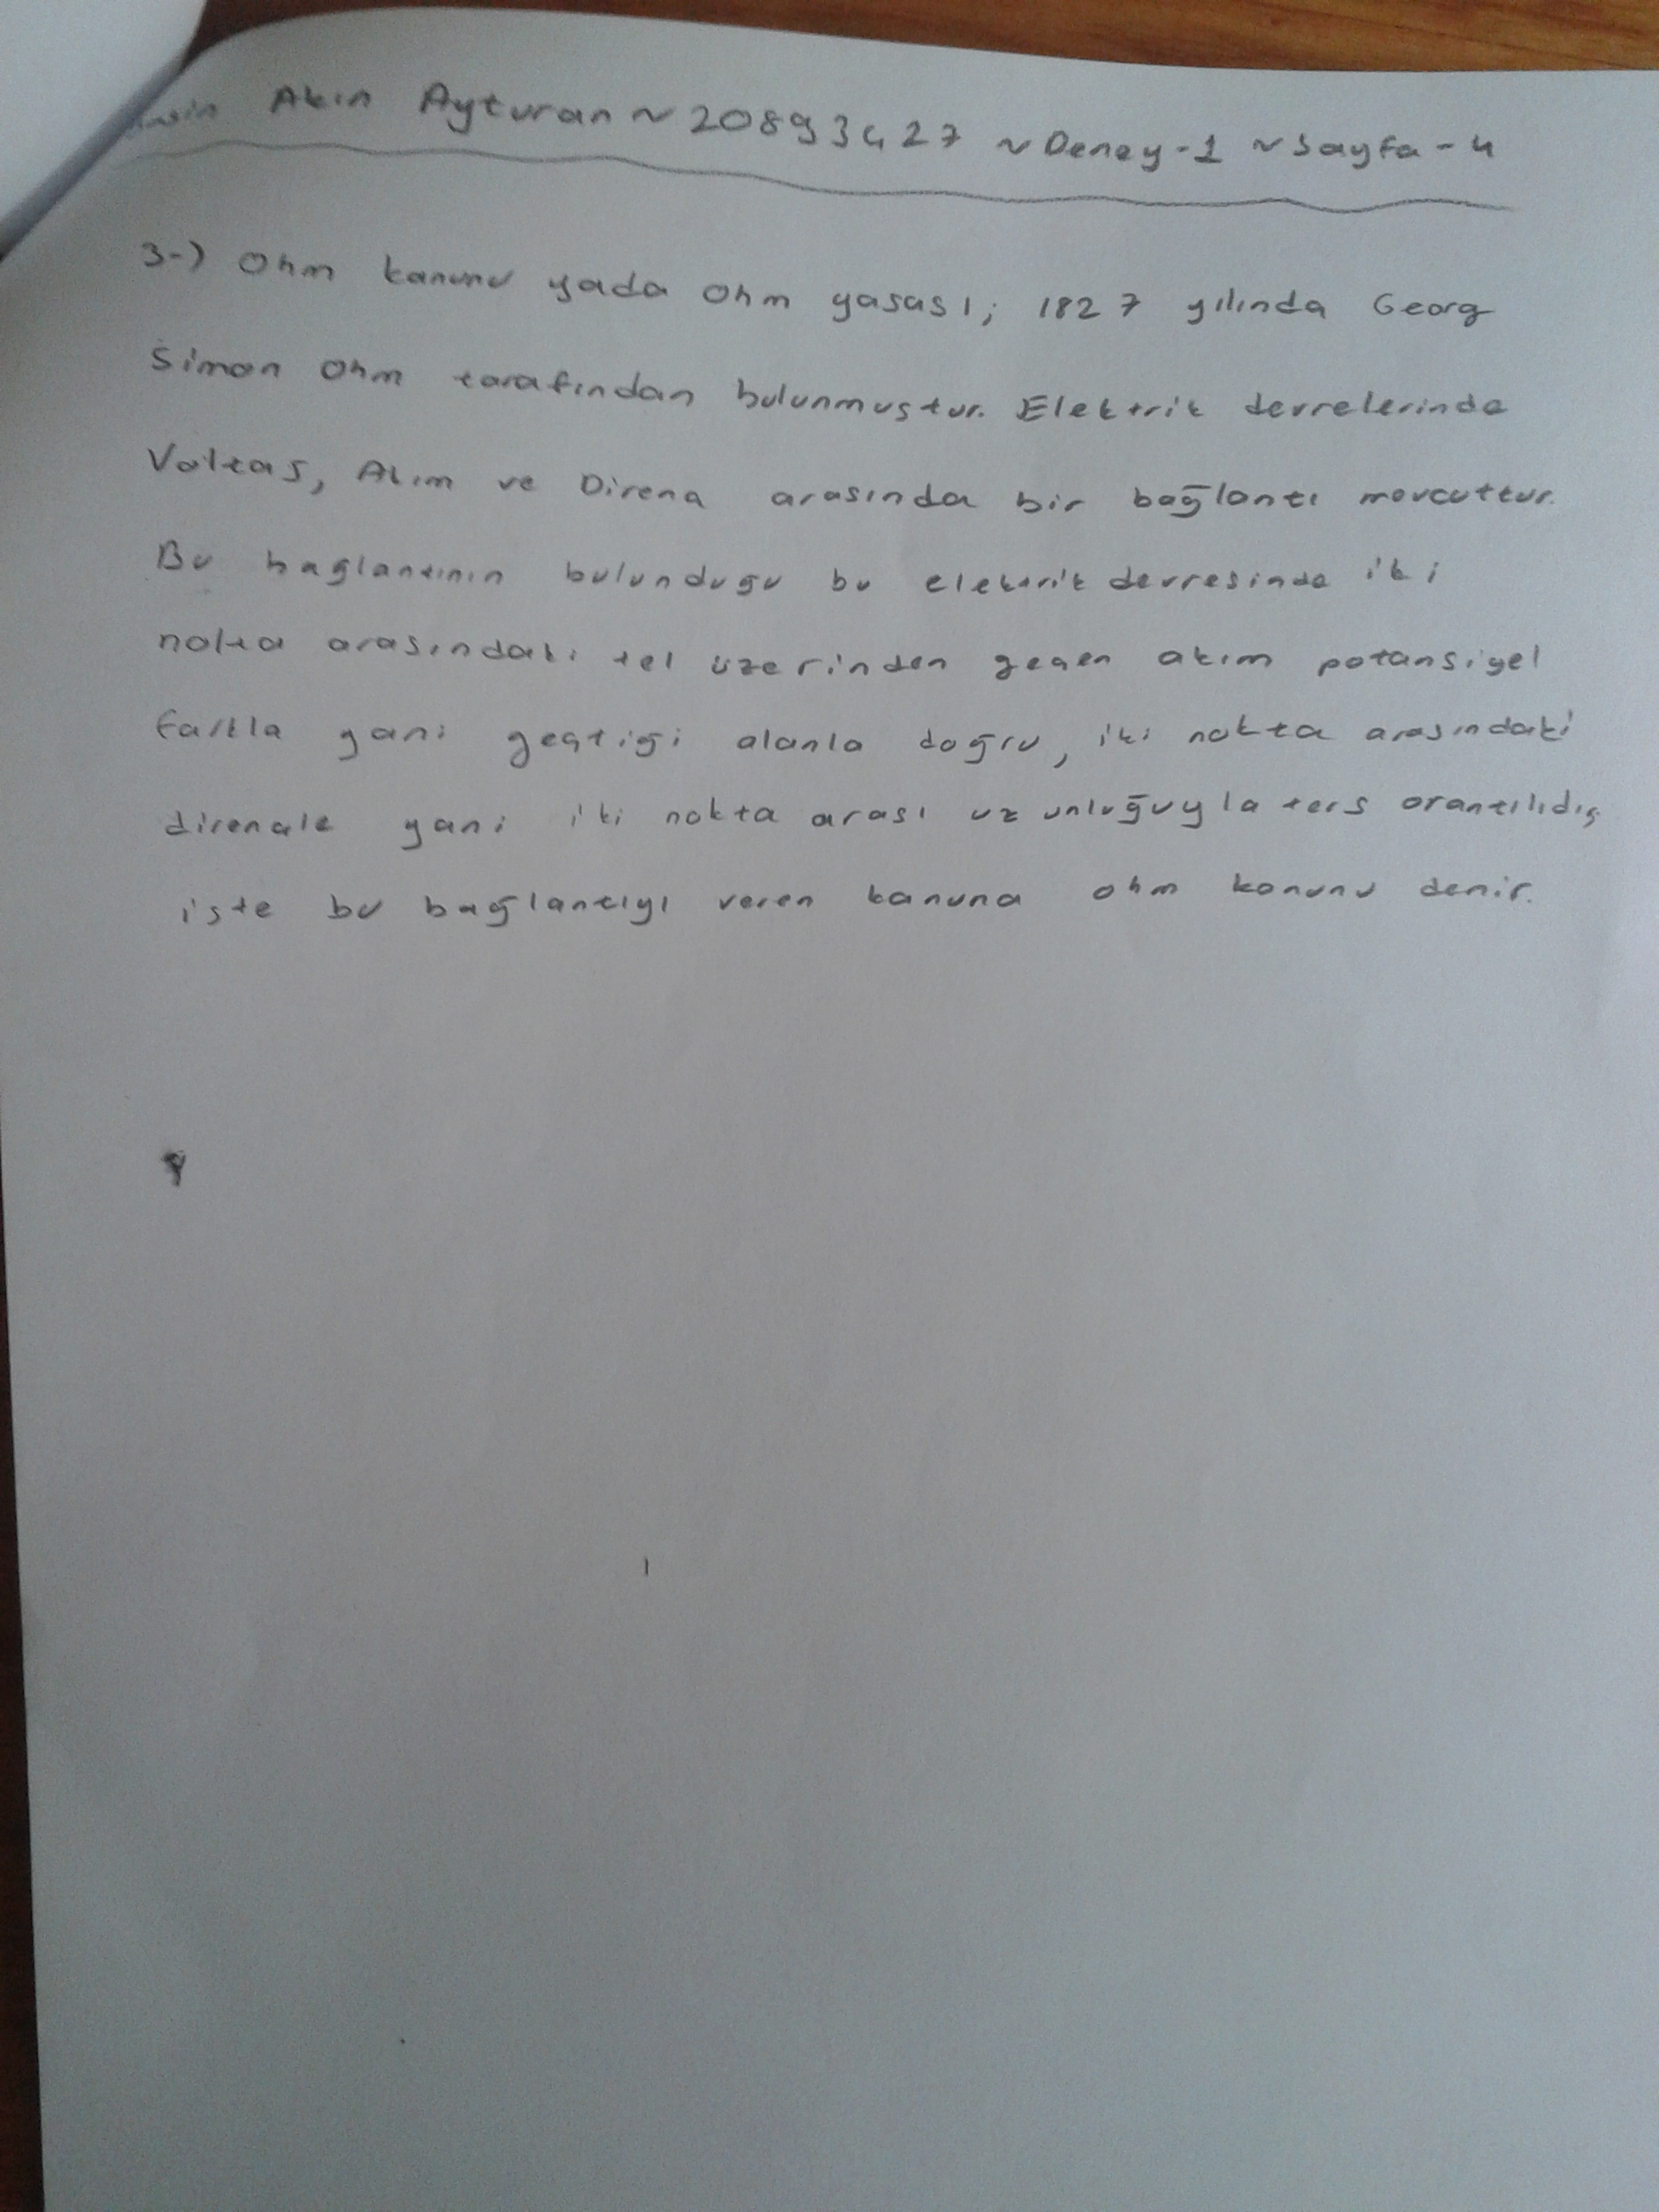 Akın Ayturan ~ 20893427 ~ Deney-1 ~ Sayfa-4
3-) Ohm kanunu yada Ohm yasası; 1827 yılında Georg
Simon Ohm tarafından bulunmuştur. Elektrik devrelerinde
Voltaj, Akım ve Direnç arasında bir bağlantı mevcuttur.
Bu bağlantının bulunduğu bu elektrik devresinde iki
nokta arasındaki tel üzerinden geçen akım potansiyel
farkla yani geçtiği alanla doğru, iki nokta arasındaki
dirençle yani iki nokta arası uzunluğuyla ters orantılıdır.
işte bu bağlantıyı veren kanuna ohm kanunu denir.